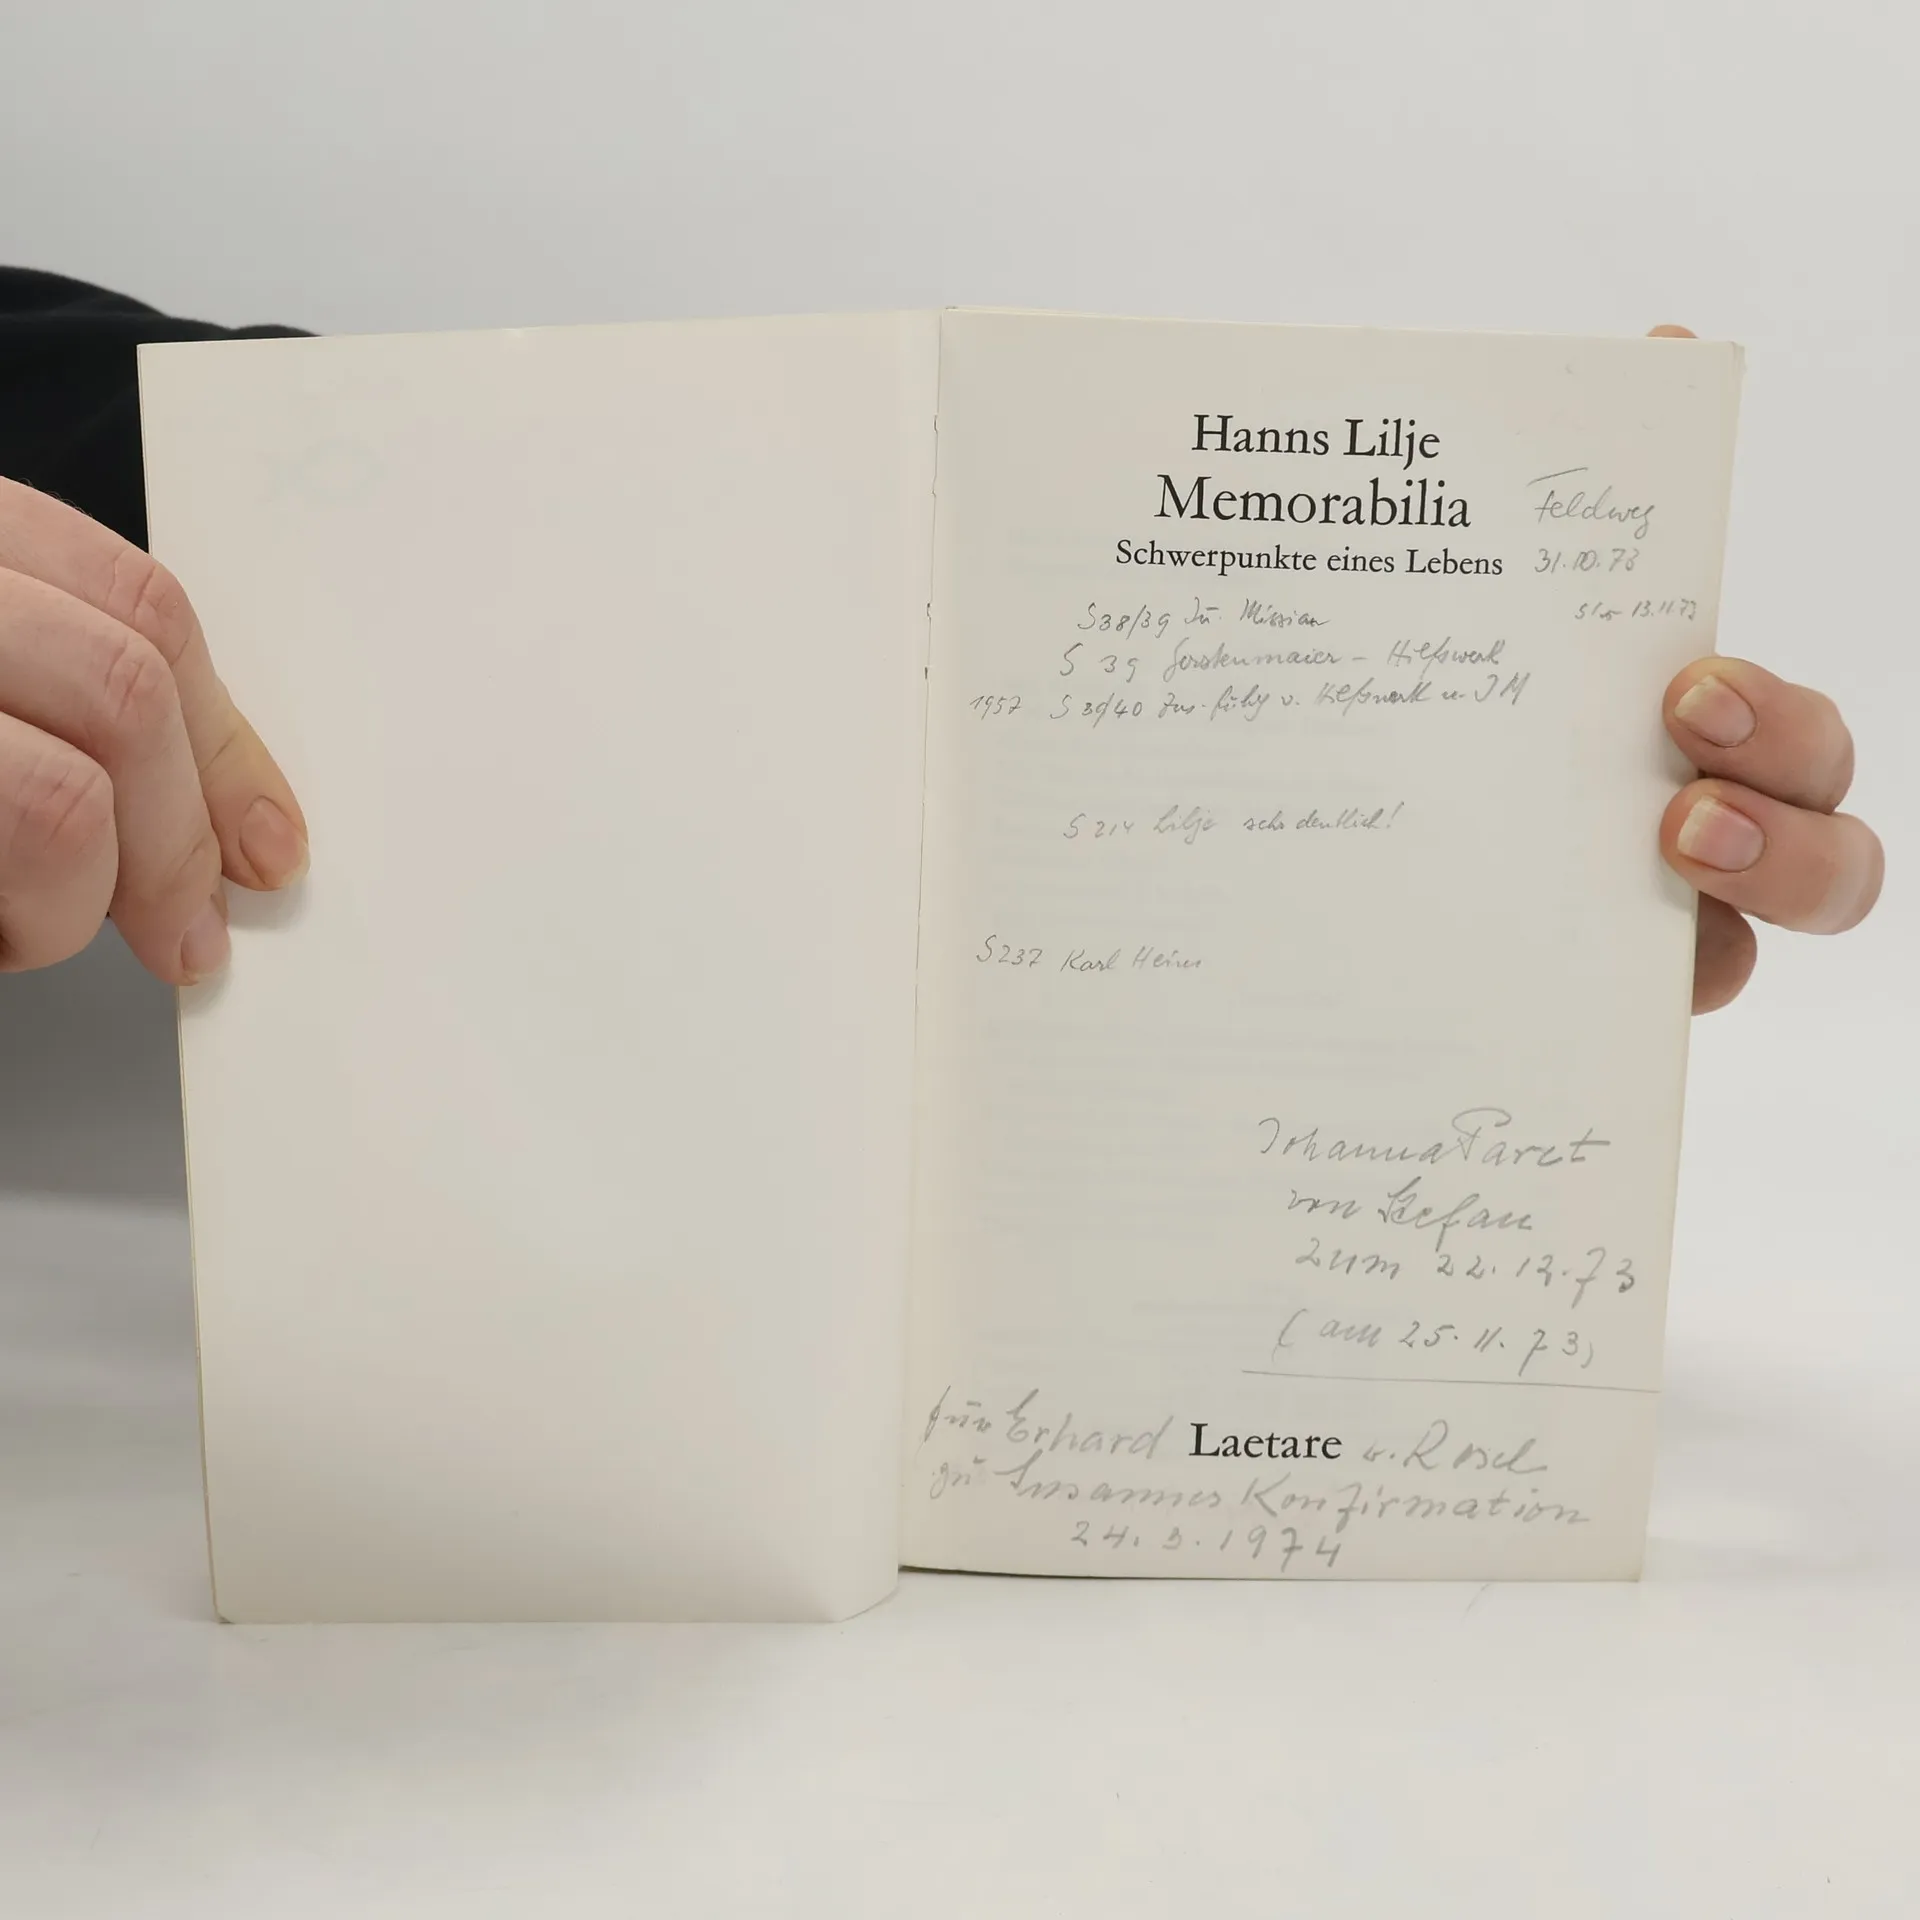 Hanns Lilje
Memorabilia
Schwerpunkte eines Lebens
Feldweg
31.10.73
13.11.73
S 38/39 In. Mission
S 39 Gerstenmaier – Hilfswerk
1957 S 39/40 Zus.führg v. Hilfswerk u. IM
S 214 Lilje sehr deutlich!
S 237 Karl Heim
Johanna Paret
von Stefan
zum 22.12.73
(am 25.11.73)
für Erhard Laetare u. Rosel
zu Susannes Konfirmation
24.3.1974